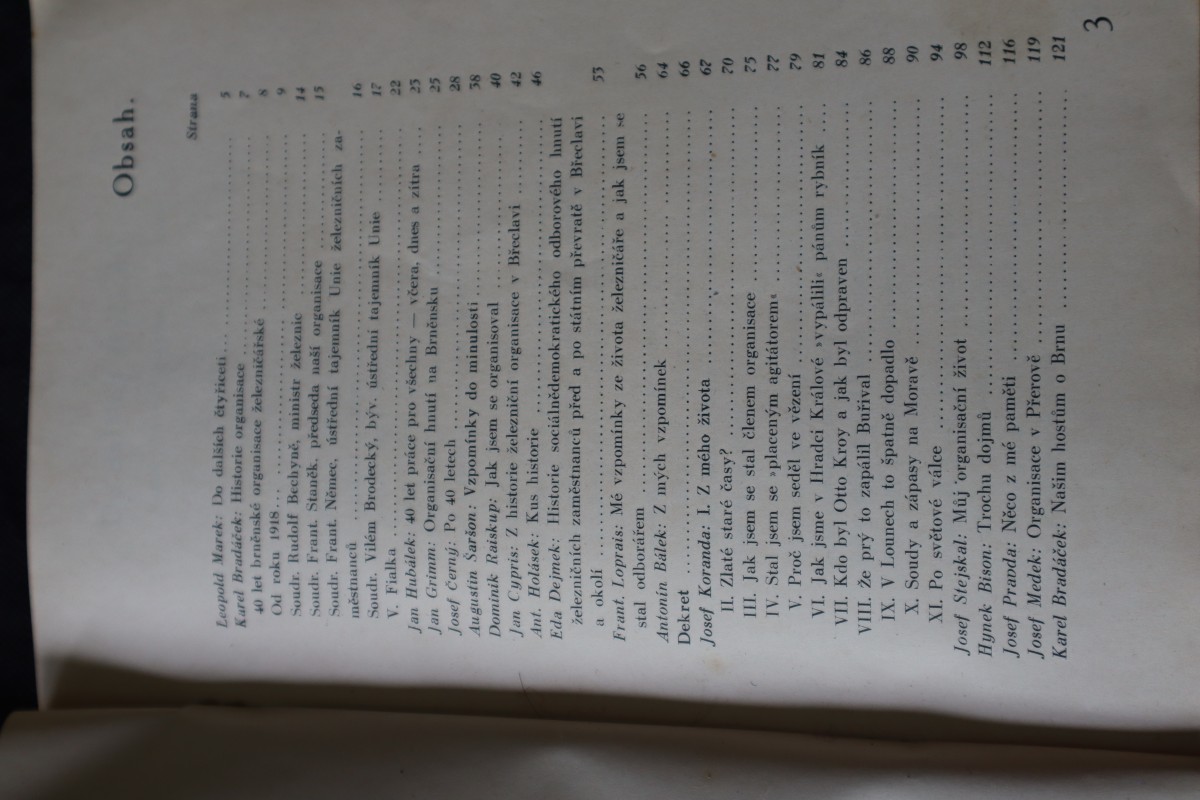 Obsah.
Strana
Leopold Marek: Do dalších čtyřiceti ..... 5
Karel Bradáček: Historie organisace ..... 7
40 let brněnské organisace železničářské ..... 8
Od roku 1918 ..... 9
Soudr. Rudolf Bechyně, ministr železnic ..... 14
Soudr. Frant. Staněk, předseda naší organisace ..... 15
Soudr. Frant. Němec, ústřední tajemník Unie železničních za-
městnanců ..... 16
Soudr. Vilém Brodecký, býv. ústřední tajemník Unie ..... 17
V. Fialka ..... 22
Jan Hubálek: 40 let práce pro všechny — včera, dnes a zítra ... 23
Jan Grimm: Organisační hnutí na Brněnsku ..... 25
Josef Černý: Po 40 letech ..... 28
Augustin Šaršon: Vzpomínky do minulosti ..... 38
Dominik Raiskup: Jak jsem se organisoval ..... 40
Jan Cypris: Z historie železniční organisace v Břeclavi ..... 42
Ant. Holásek: Kus historie ..... 46
Eda Dejmek: Historie sociálnědemokratického odborového hnutí
železničních zaměstnanců před a po státním převratě v Břeclavi
a okolí ..... 53
Frant. Loprais: Mé vzpomínky ze života železničáře a jak jsem se
stal odborářem ..... 56
Antonín Bálek: Z mých vzpomínek ..... 64
Dekret ..... 66
Josef Koranda: I. Z mého života ..... 67
II. Zlaté staré časy? ..... 70
III. Jak jsem se stal členem organisace ..... 75
IV. Stal jsem se »placeným agitátorem« ..... 77
V. Proč jsem seděl ve vězení ..... 79
VI. Jak jsme v Hradci Králové »vypálili« pánům rybník ... 81
VII. Kdo byl Otto Kroy a jak byl odpraven ..... 84
VIII. Že prý to zapálil Buřival ..... 86
IX. V Lounech to špatně dopadlo ..... 88
X. Soudy a zápasy na Moravě ..... 90
XI. Po světové válce ..... 94
Josef Stejskal: Můj organisační život ..... 98
Hynek Bison: Trochu dojmů ..... 112
Josef Pranda: Něco z mé paměti ..... 116
Josef Medek: Organisace v Přerově ..... 119
Karel Bradáček: Našim hostům o Brnu ..... 121
3